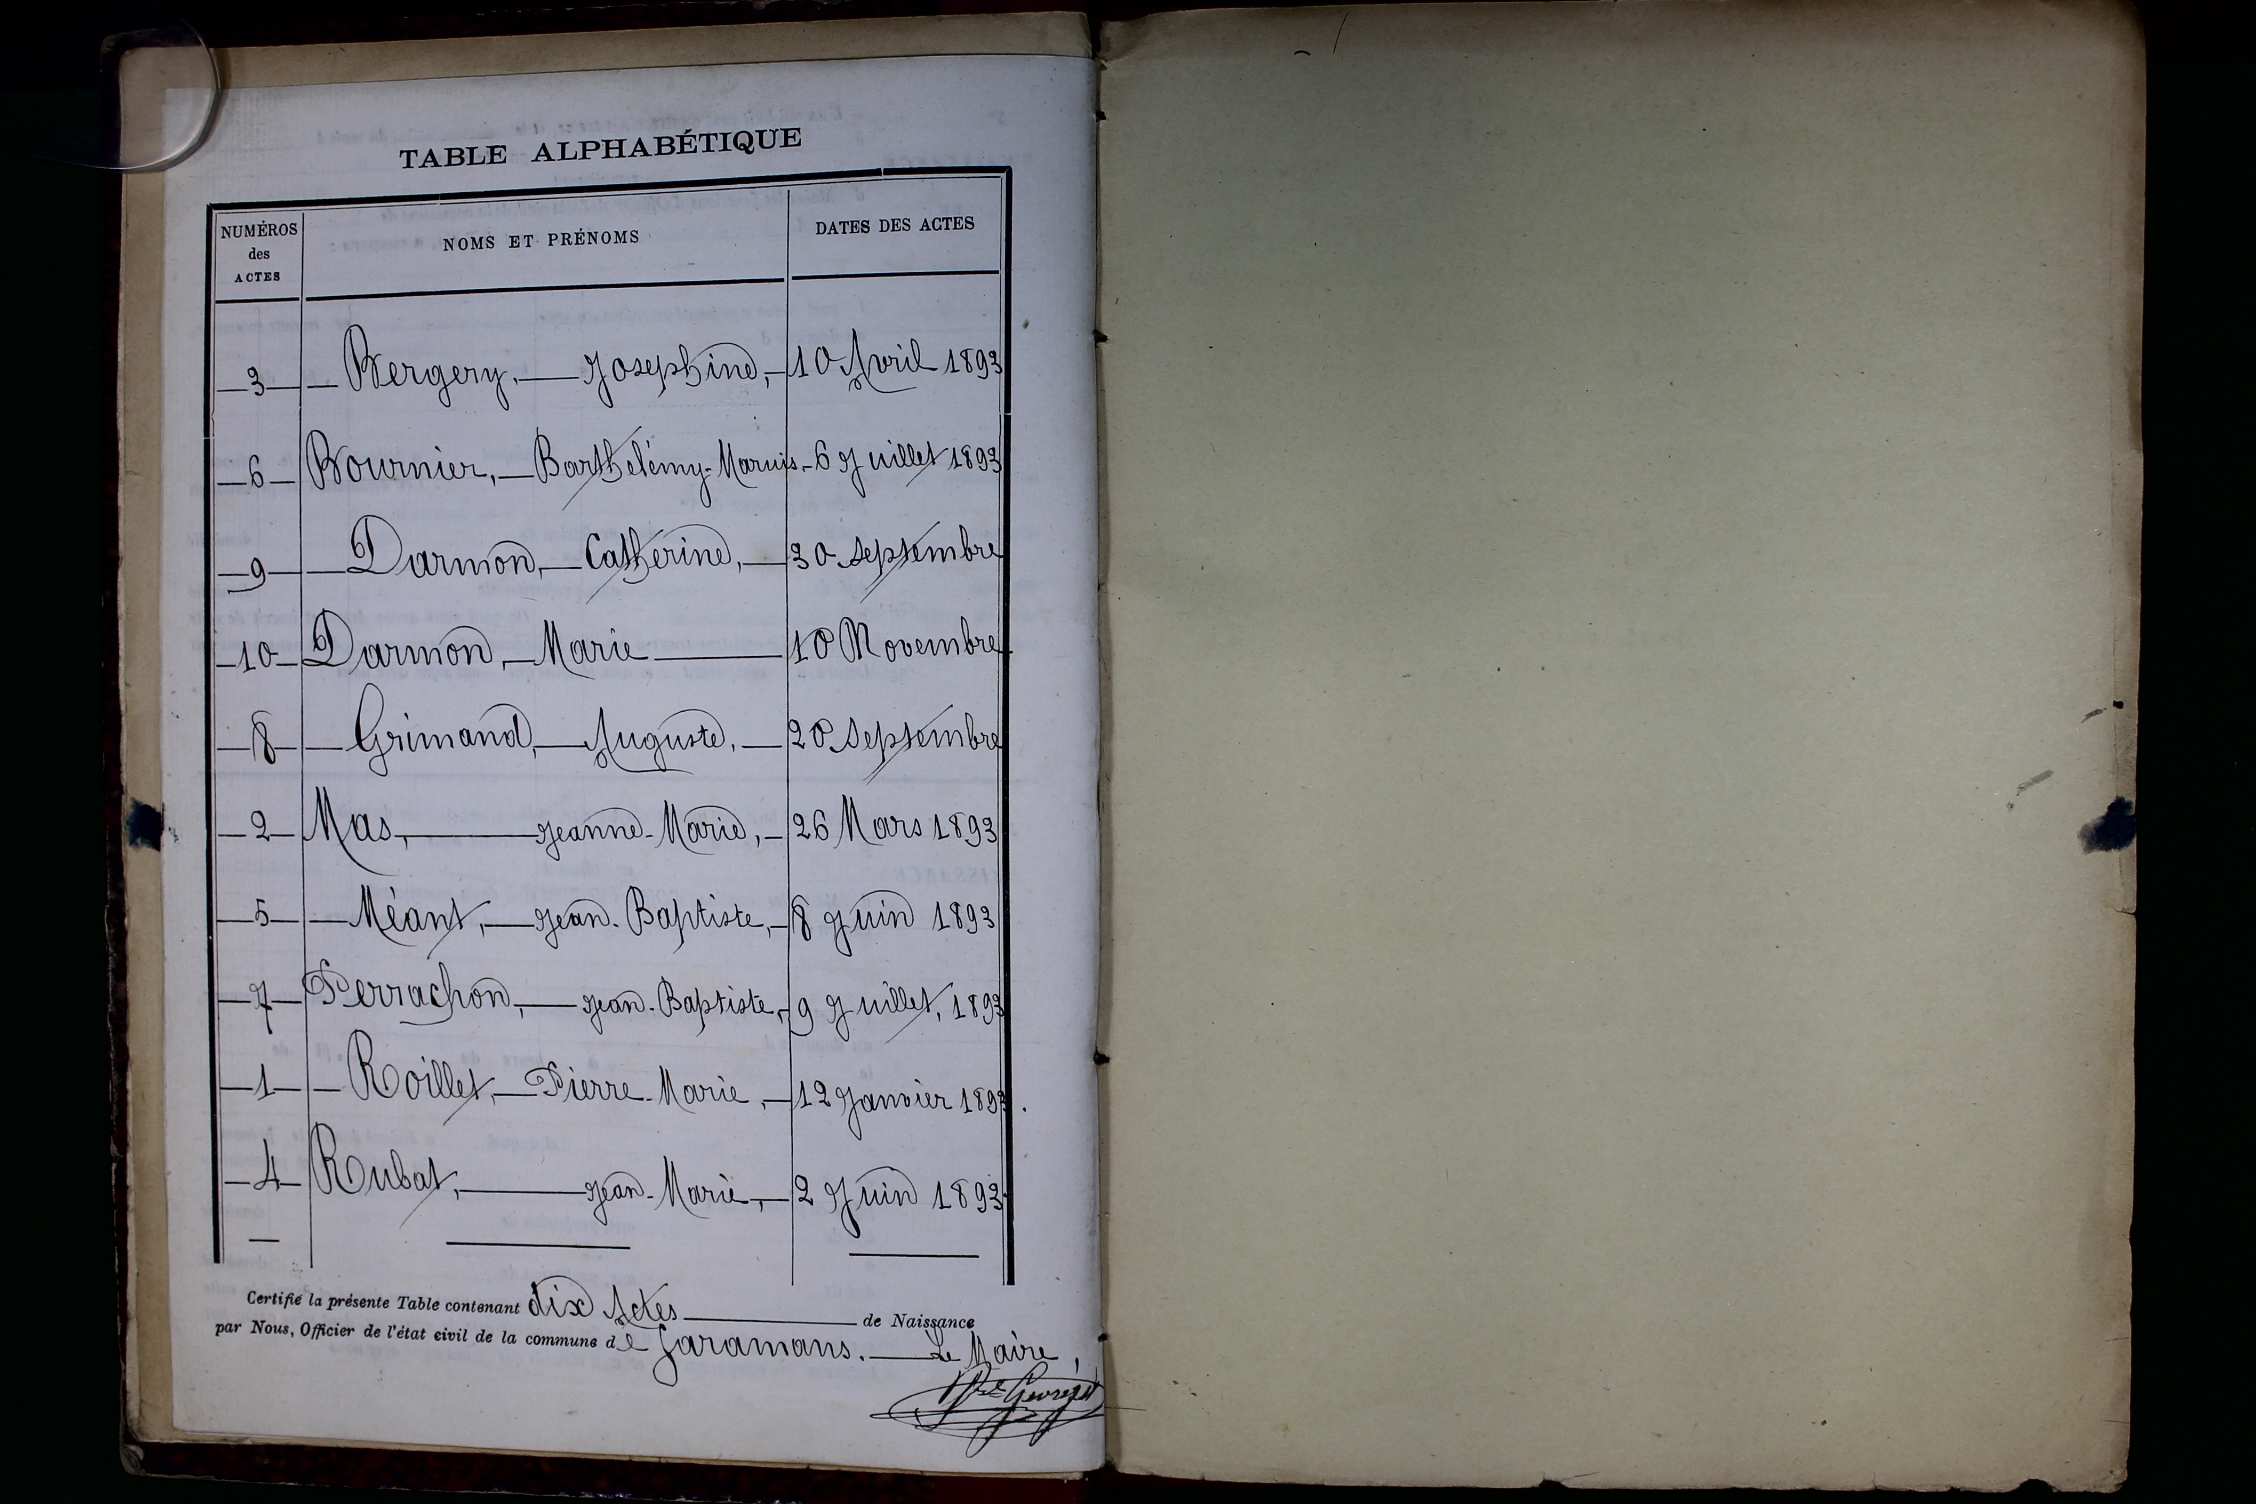 TABLE ALPHABÉTIQUE
NUMÉROS des ACTES NOMS ET PRÉNOMS DATES DES ACTES
3 Bergery, Josephine, 10 Avril 1893
6 Bournier, Barthelémy-Marius 6 Juillet 1893
9 Darmon, Catherine, 30 Septembre
10 Darmon, Marie 10 Novembre
8 Grimand, Auguste, 20 Septembre
2 Mas, Jeanne-Marie, 26 Mars 1893
5 Méant, Jean-Baptiste, 8 Juin 1893
7 Perrachon, Jean-Baptiste, 9 Juillet, 1893
1 Roillet, Pierre-Marie, 12 Janvier 1893.
4 Rubat, Jean-Marie, 2 Juin 1893
Certifié la présente Table contenant dix Actes de Naissance
par Nous, Officier de l'état civil de la commune de Garamans. Le Maire,